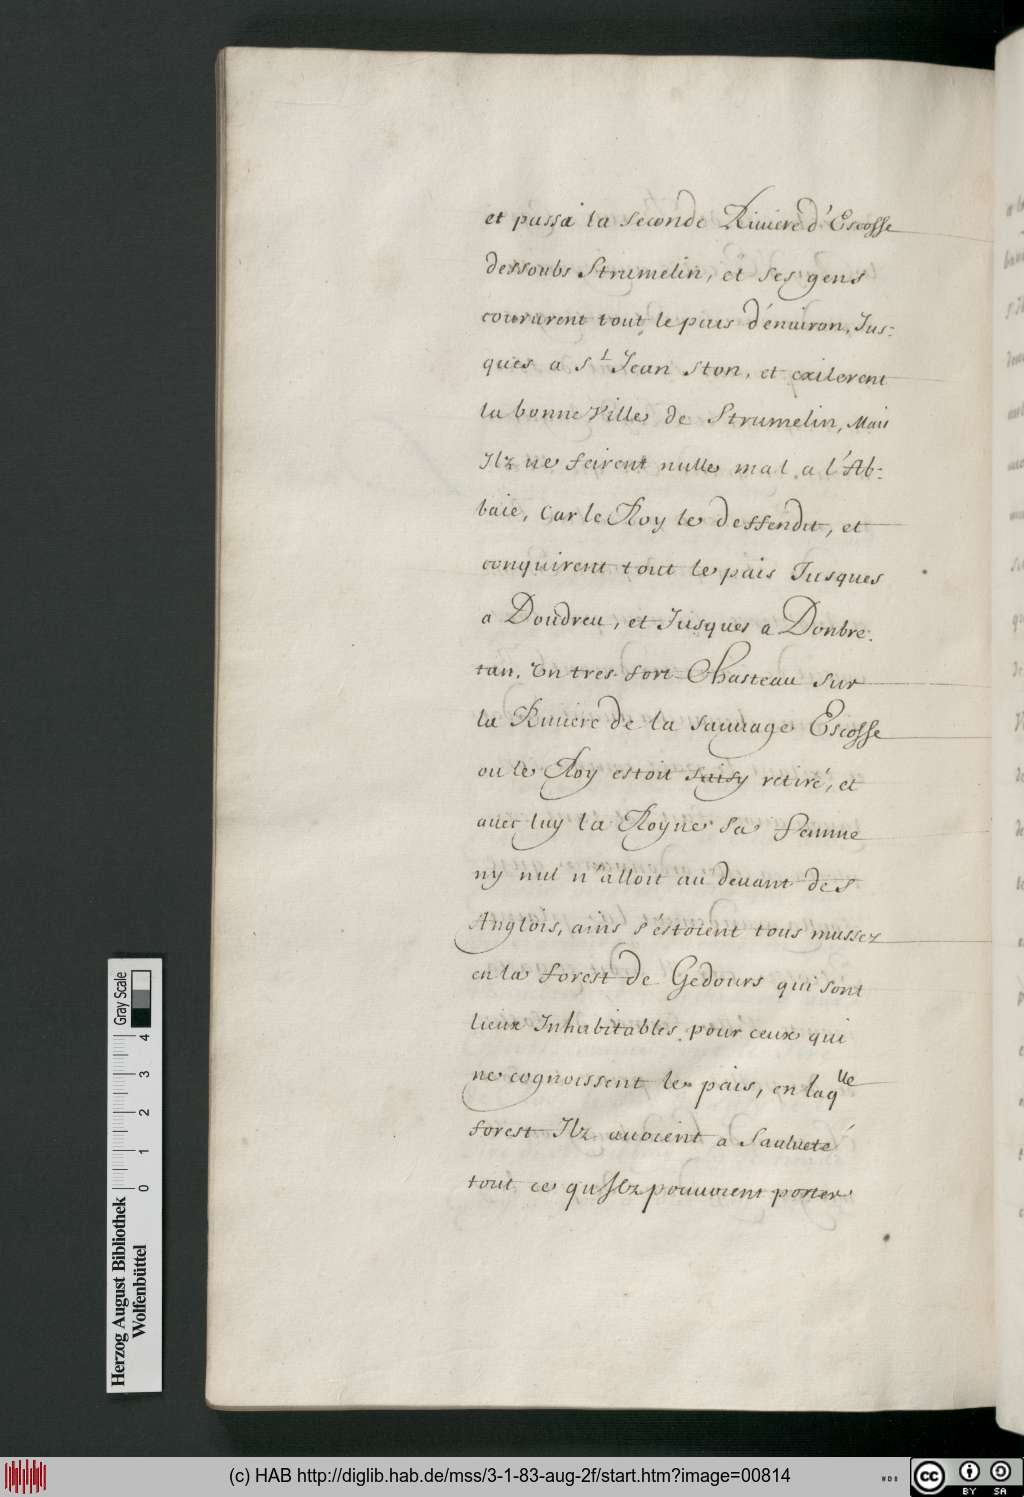 et passa la seconde Riuiere d'Escosse
dessoubs Strumelin, et ses gens
coururent tout le pais d'énuiron, Jus-
ques a S.t Jean Ston, et exilerent
la bonne Ville de Strumelin, Mais
Ilz ne feirent nulle mal a l'Ab-
baie, Car le Roy le deffendit, et
conquirent tout le pais Jusques
a Doudreu, et Jusques a Donbre.
tan. Un tres fort Chasteau sur
la Riuiere de la sauuage Escosse
ou le Roy estoit saisy retiré, et
auec luy la Royne sa femme
ny nul n'alloit au deuant des
Anglois, ains s'éstoient tous mussez
en la forest de Gedours qui sont
lieux Inhabitables pour ceux qui
ne cognoissent le pais, en laqlle
forest Ilz auoient a Saulueté
tout ce qu'Ilz pouuoient porter
Gray Scale
0 1 2 3 4
Herzog August Bibliothek
Wolfenbüttel
(c) HAB http://diglib.hab.de/mss/3-1-83-aug-2f/start.htm?image=00814
WDB
cc BY SA